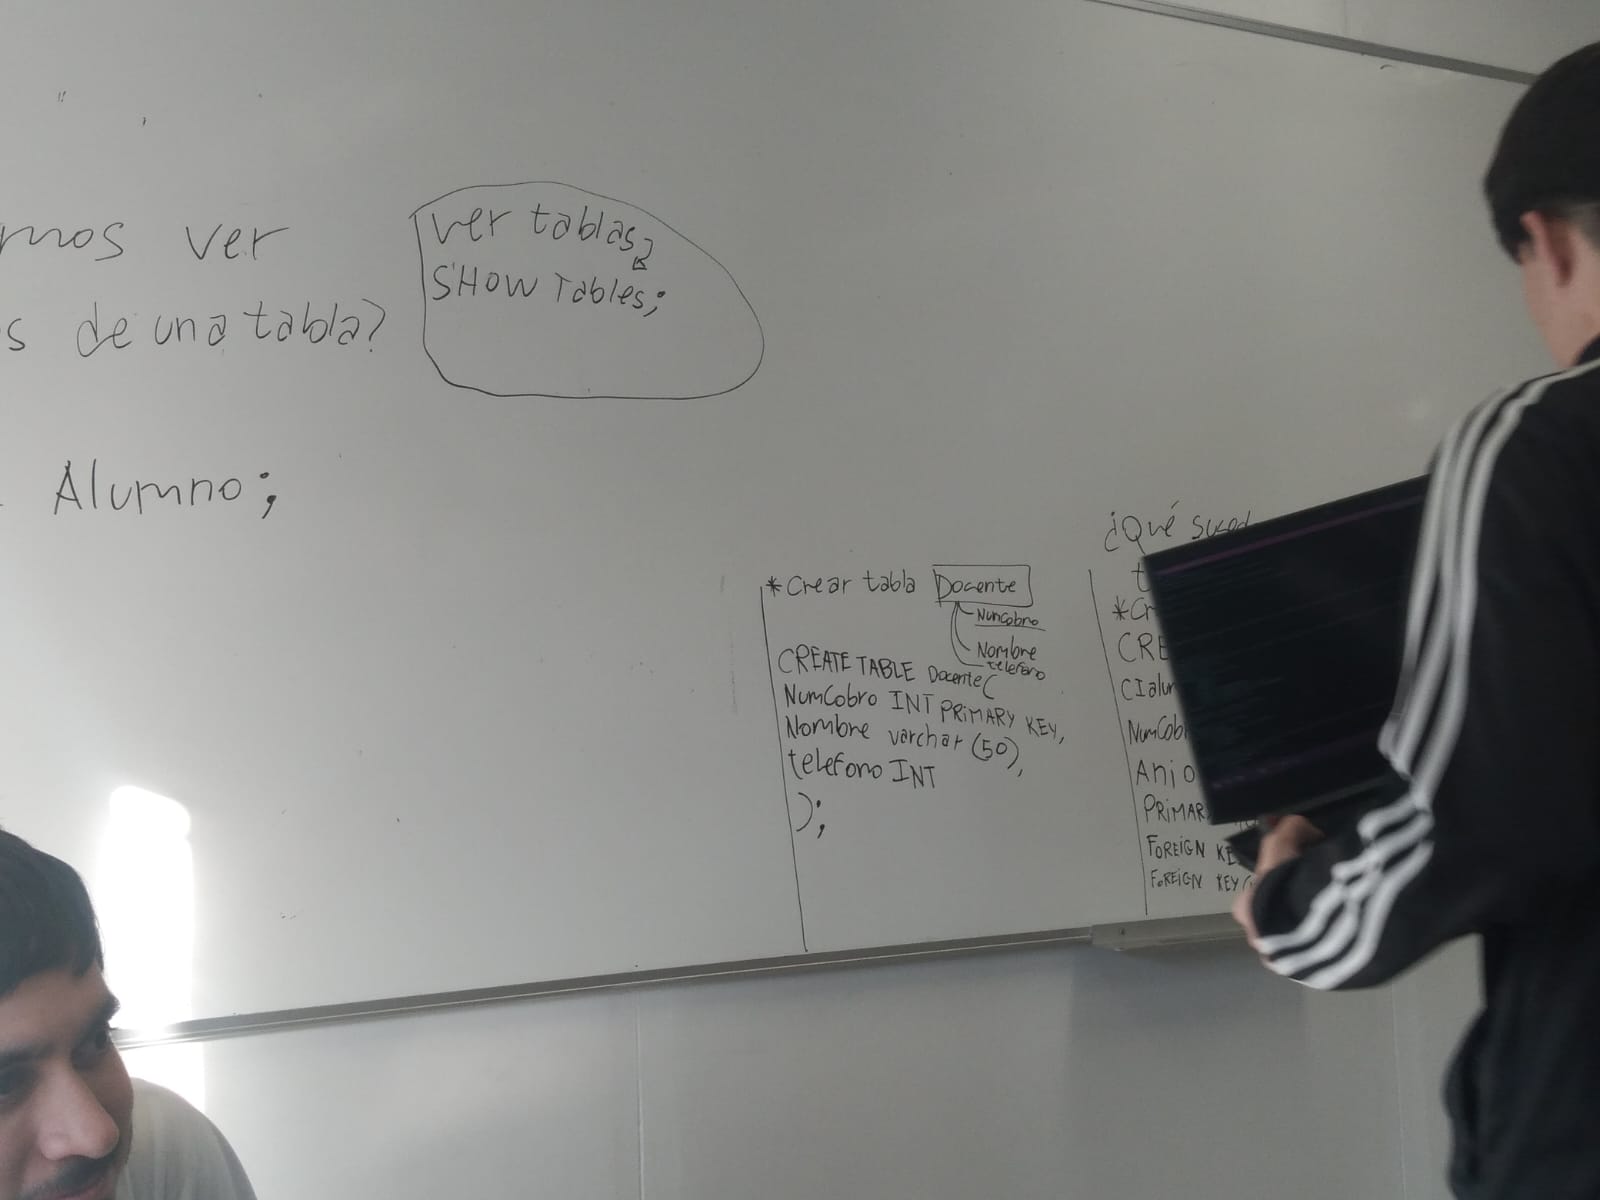 ver
de una tabla?
Alumno;
ver tablas
SHOW Tables;
*Crear tabla Docente
NumCobro
Nombre
telefono
CREATE TABLE Docente(
NumCobro INT PRIMARY KEY,
Nombre varchar (50),
telefono INT
);
¿Qué
NumCob
Anio
PRIMAR
FOREIGN KE
FOREIGN KEY(